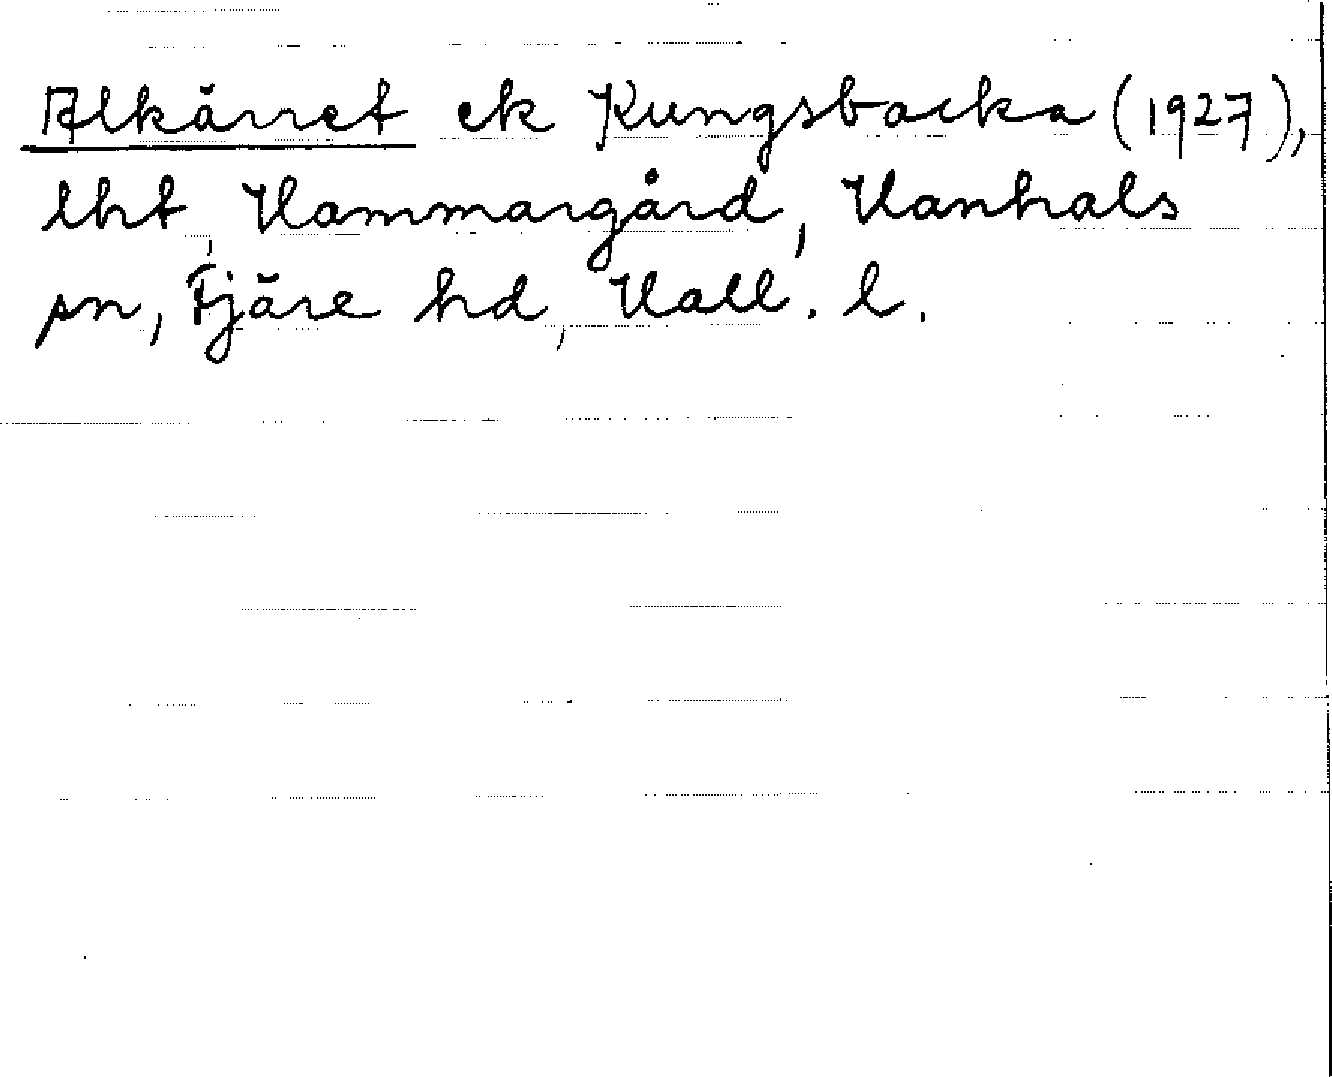 Alkärret ek Kungsbacka (1927),
lht, Hammargård, Hanhals
sn, Fjäre hd, Hall. l.